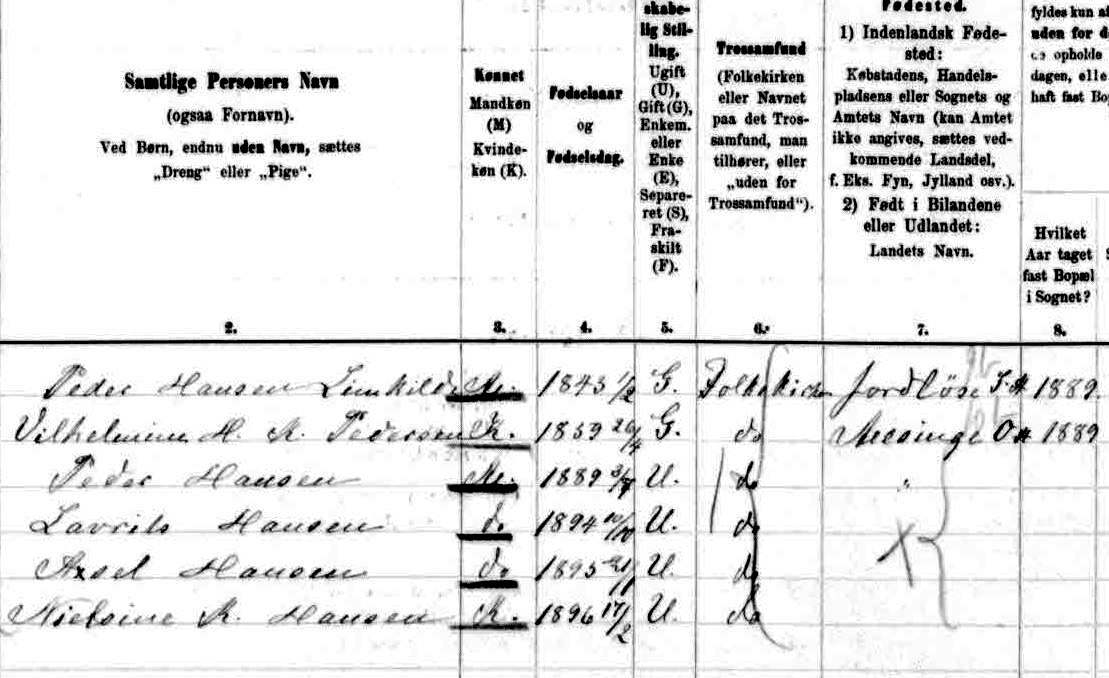 Samtlige Personers Navn
(ogsaa Fornavn).
Ved Børn, endnu uden Navn, sættes
„Dreng“ eller „Pige“.
2.
Kønnet
Mandkøn
(M)
Kvinde-
køn (K).
3.
Fødselsaar
og
Fødselsdag.
4.
skabe-
lig Stil-
ling.
Ugift
(U),
Gift (G),
Enkem.
eller
Enke
(E),
Separe-
ret (S),
Fra-
skilt
(F).
5.
Trossamfund
(Folkekirken
eller Navnet
paa det Tros-
samfund, man
tilhører, eller
„uden for
Trossamfund“).
6.
Fødested.
1) Indenlandsk Føde-
sted:
Købstadens, Handels-
pladsens eller Sognets og
Amtets Navn (kan Amtet
ikke angives, sættes ved-
kommende Landsdel,
f. Eks. Fyn, Jylland osv.).
2) Født i Bilandene
eller Udlandet:
Landets Navn.
7.
fyldes kun af
uden for d
opholde
dagen, elle
haft fast Bo
Hvilket
Aar taget
fast Bopæl
i Sognet?
8.
Peder Hansen M. 1843 1/2 G. Folkekirken Jordløse 1889.
Vilhelmine H. K. Pedersen K. 1859 26/4 G. do 1889
Peder Hansen M. 1889 U. do "
Lavrits Hansen do 1894 10/10 U. do
Axsel Hansen do 1895 21/11 U. do
Nielsine K. Hansen K. 1896 17/2 U. do